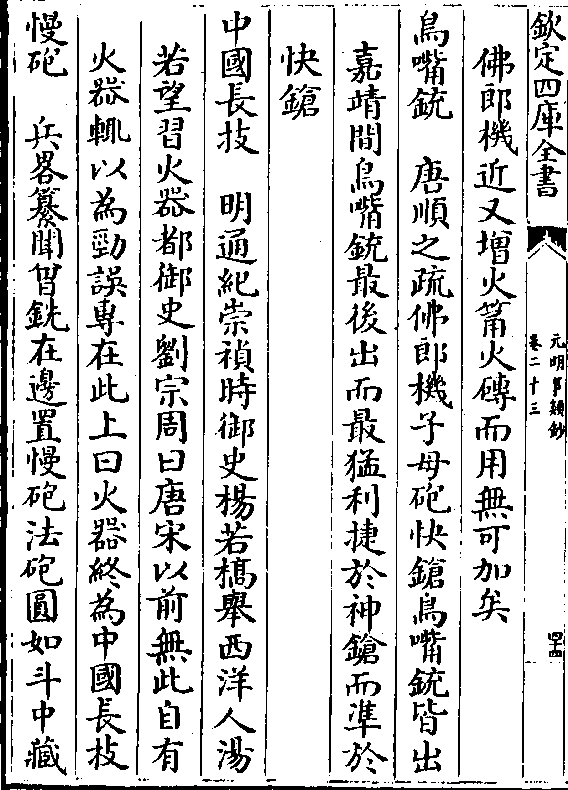 欽定四庫全書
元明事類鈔
卷二十三
四十四
佛郎機近又增火箭火磚而用無可加矣
鳥嘴銃　唐順之疏佛郎機子母砲快鎗鳥嘴銃皆出
嘉靖間鳥嘴銃最後出而最猛利捷於神鎗而準於
快鎗
中國長技　明通紀崇禎時御史楊若橋舉西洋人湯
若望習火器都御史劉宗周曰唐宋以前無此自有
火器輒以為勁誤專在此上曰火器終為中國長技
慢砲　兵畧纂聞曾銑在邊置慢砲法砲圓如斗中藏